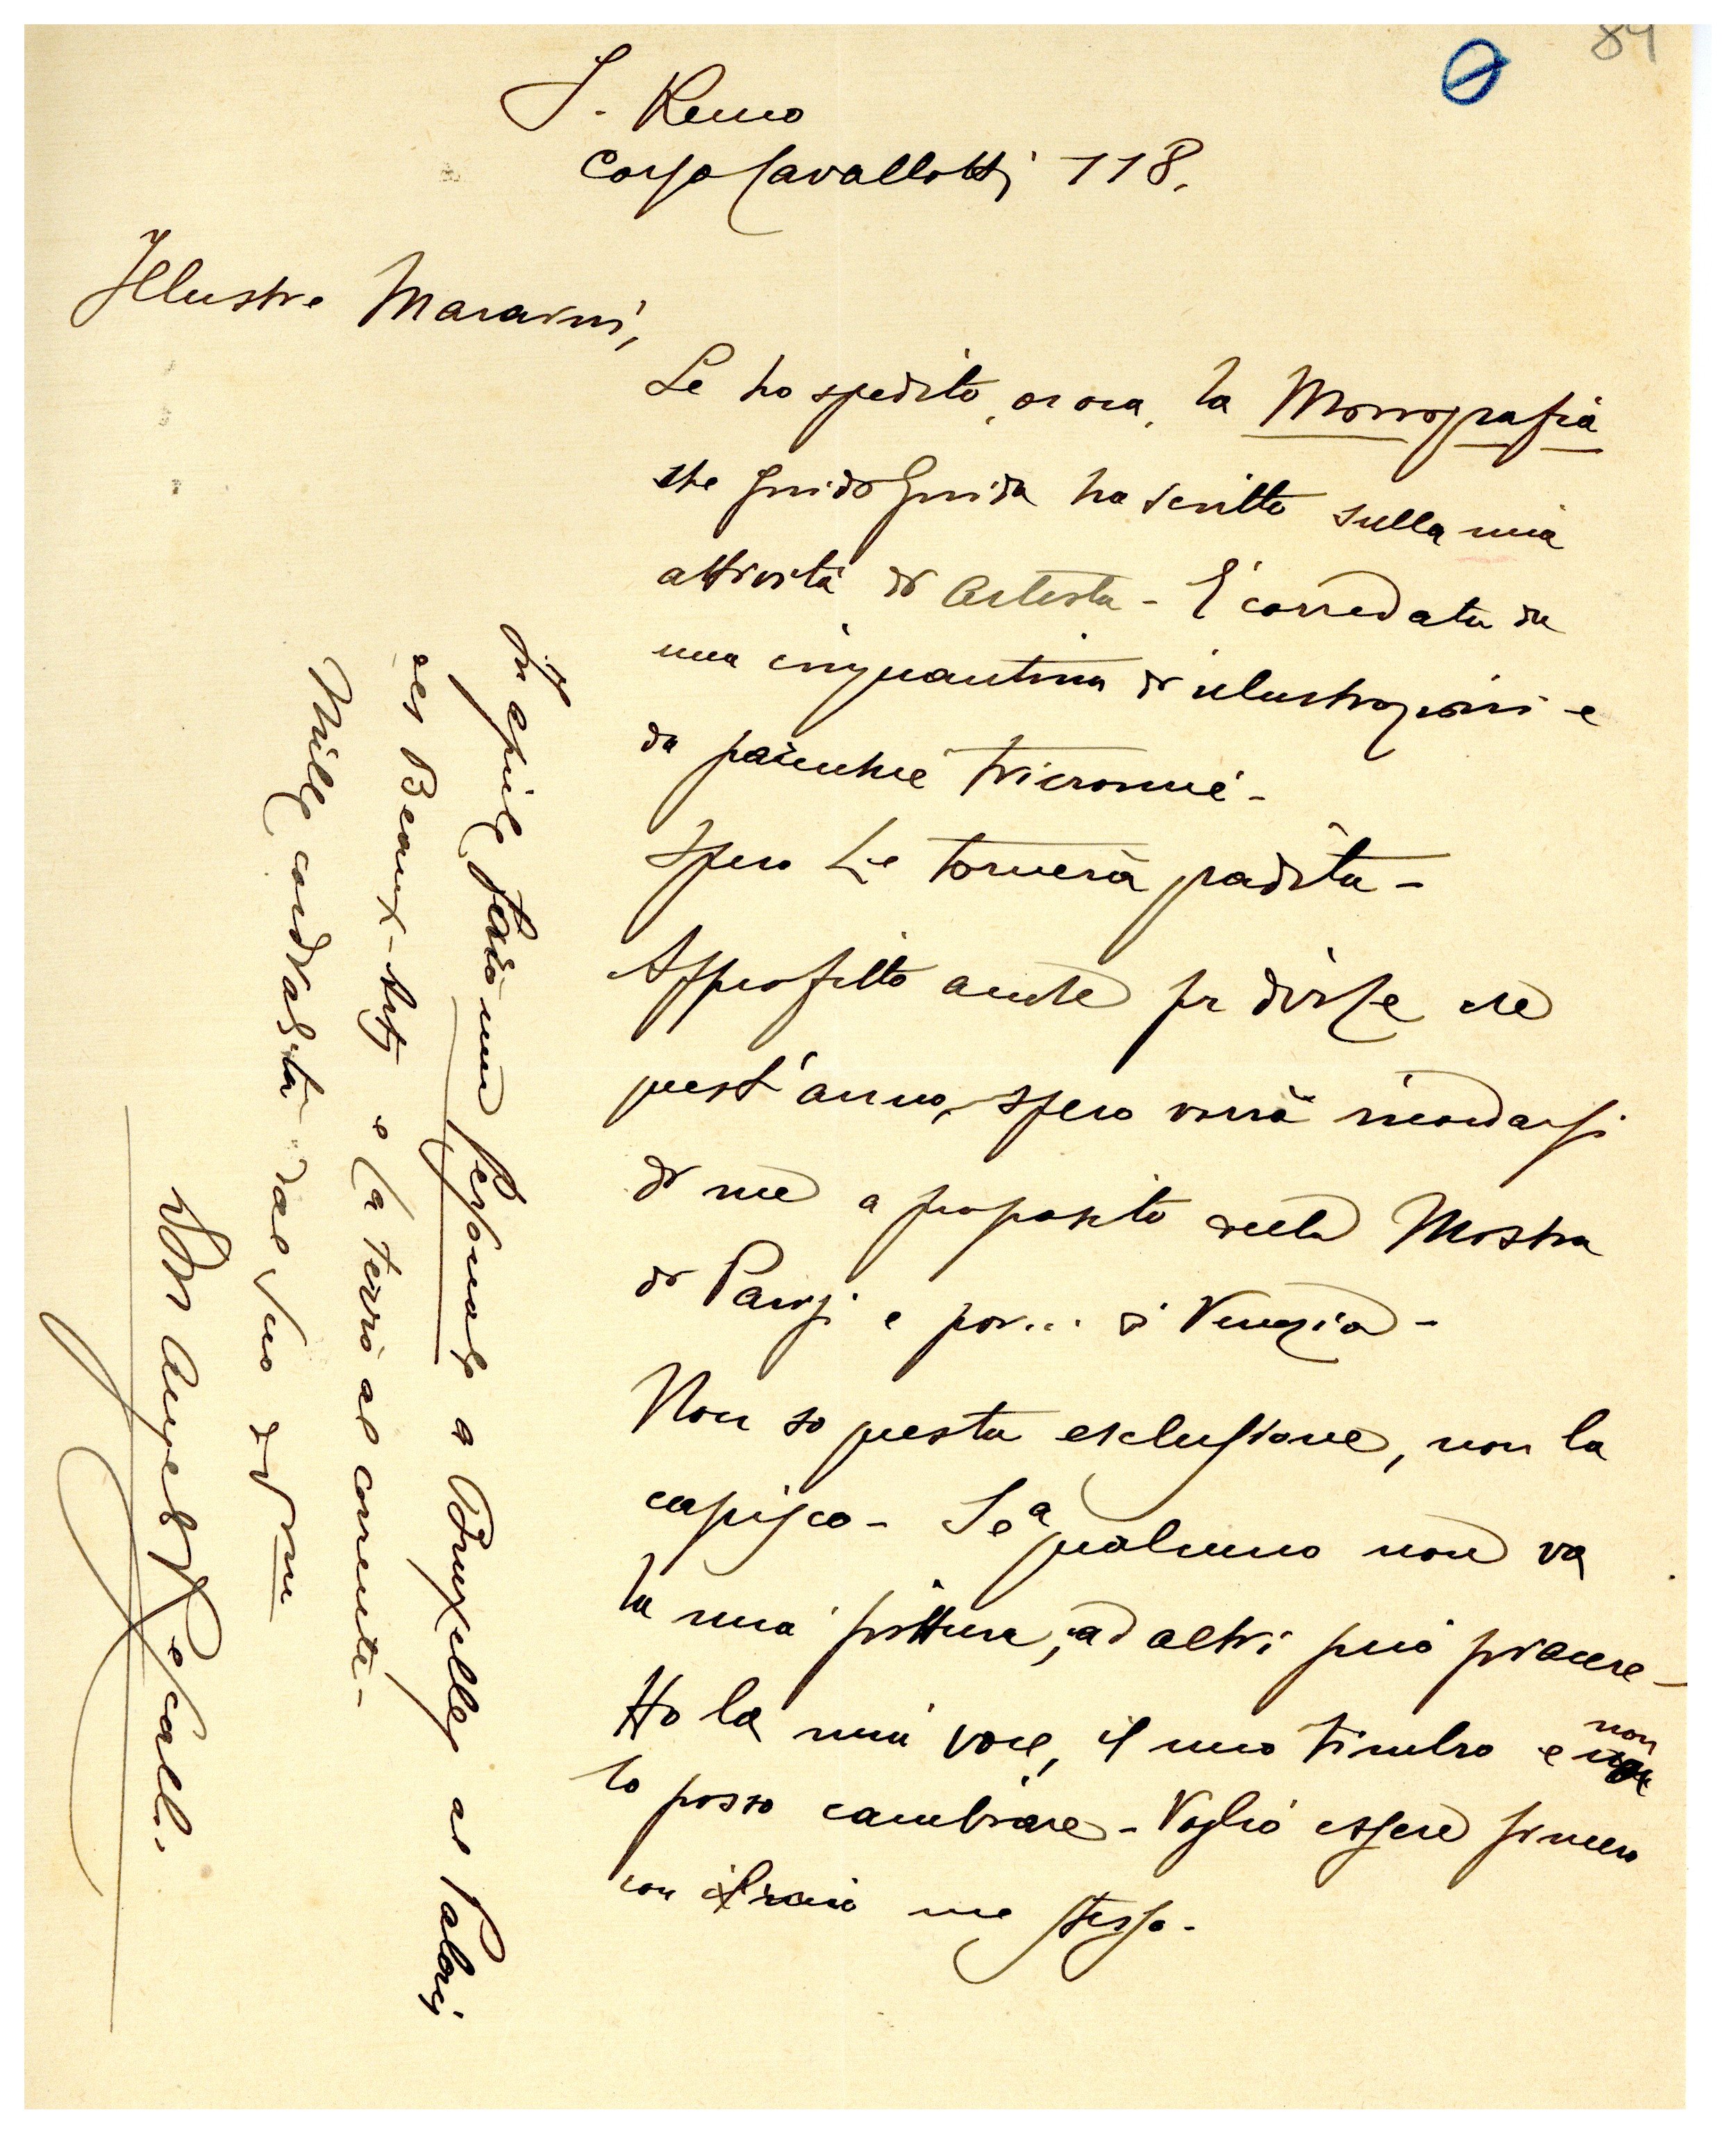 84
S. Remo
Corso Cavallotti 118.
Illustre Maraini,
Le ho spedito, or ora, la Monografia
che Guido Guida ha scritto sulla mia
attività di Artista - È corredata da
una cinquantina di illustrazioni e
da parecchie tricromie -
Spero Le tornerà gradita -
Approfitto anche per dirle che
quest'anno, spero vorrà ricordarsi
di me a proposito della Mostra
di Parigi e poi... di Venezia -
Non so questa esclusione, non la
capisco - Se a qualcuno non va
la mia pittura, ad altri può piacere -
Ho la mia voce, il mio timbro e non
lo posso cambiare - Voglio essere sincero
con me stesso -
In aprile farò una Personale a Bruxelles al Palais
des Beaux-Arts e La terrò al corrente -
Mille cordialità dal Suo
Angelo Pescalli